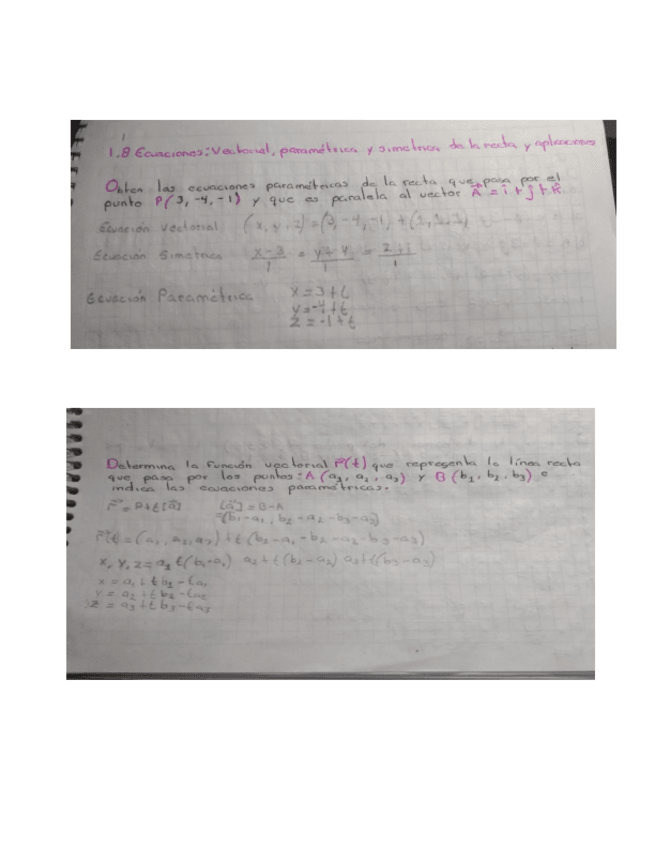 1.8 Ecuaciones: Vectorial, paramétrica y simetrica de la recta y aplicaciones
Obten las ecuaciones paramétricas de la recta que pasa por el
punto P(3, -4, -1) y que es paralela al vector A = i + j + k.
Ecuación Vectorial (x, y, z) = (3, -4, -1) + (1, 1, 1)
Ecuación Simetrica x-3/1 = y+4/1 = z+1/1
Ecuación Paramétrica x = 3+t
y = -4+t
z = -1+t
Determina la función vectorial r(t) que representa la línea recta
que pasa por los puntos: A (a₁, a₂, a₃) y B (b₁, b₂, b₃) e
indica las ecuaciones paramétricas.
r = P+t[a] [a] = B-A
=(b₁-a₁, b₂-a₂-b₃-a₃)
r(t = (a₁, a₂, a₃) + t (b₁-a₁-b₂-a₂-b₃-a₃)
x, y, z = a₁ t(b₁-a₁) a₂+t(b₂-a₂) a₃+t(b₃-a₃)
x = a₁ + t b₁ - ta₁
y = a₂ + t b₂ - ta₂
z = a₃ + t b₃ - ta₃